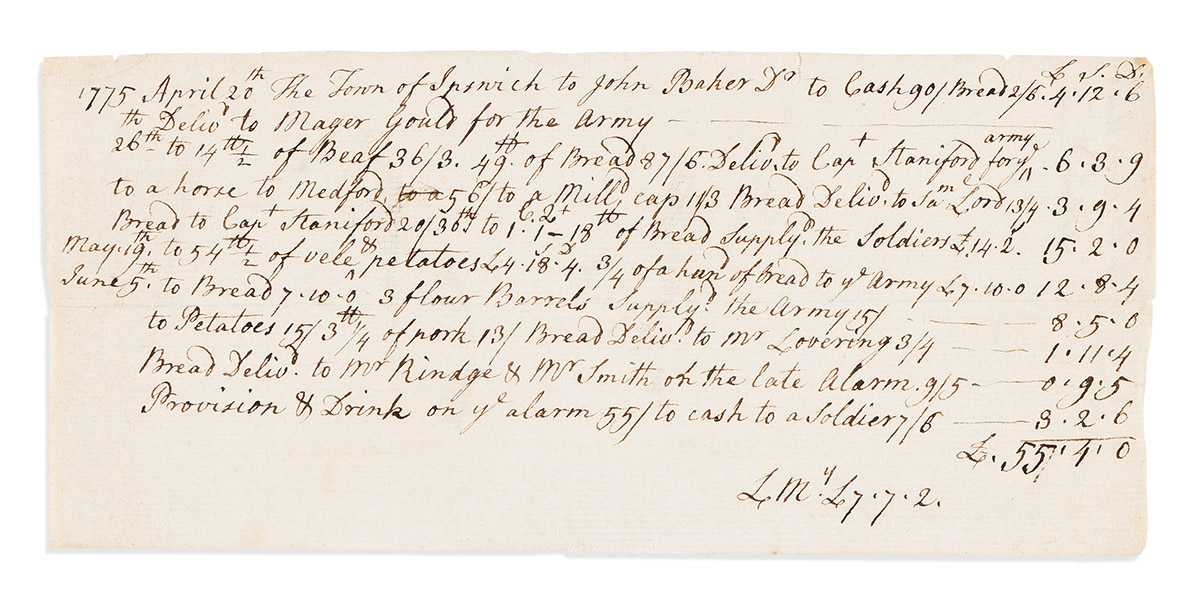 £ S. D.
1775 April 20th The Town of Ipswich to John Baker Dr to Cash 90/ Bread 2/6. 4.12.6
Delivd to Mager Gould for the Army
26th to 14 lb 1/2 of Beaf 36/3. 49 lb. of Bread 87/6. Delivd. to Capt Staniford for ye army. 6.3.9
to a horse to Medford, to a 56/ to a Milld cap 11/3 Bread Delivd. to Sam Lord 13/4. 3.9.4
Bread to Capt Staniford 20/ 36 lb to 1C. 1-18 lb of Bread Supplyd. the Soldiers £14.2. 15.2.0
May. 19th. to 54 lb 1/2 of vele & petatoes £4.18S.4D. 3/4 of a hund of bread to ye Army £7.10.0 12.8.4
June 5th. to Bread 7.10.0 3 flour Barrels Supplyd. the Army 15/ 8.5.0
to Petatoes 15/ 3 lb 1/4 of pork 13/ Bread Delivd. to Mr Lovering 3/4 1.11.4
Bread Delivd. to Mr Kindge & Mr Smith on the late Alarm. 9/5 0.9.5
Provision & Drink on ye alarm 55/ to cash to a Soldier 7/6 3.2.6
£. 55.4.0
L My. £7.7.2.